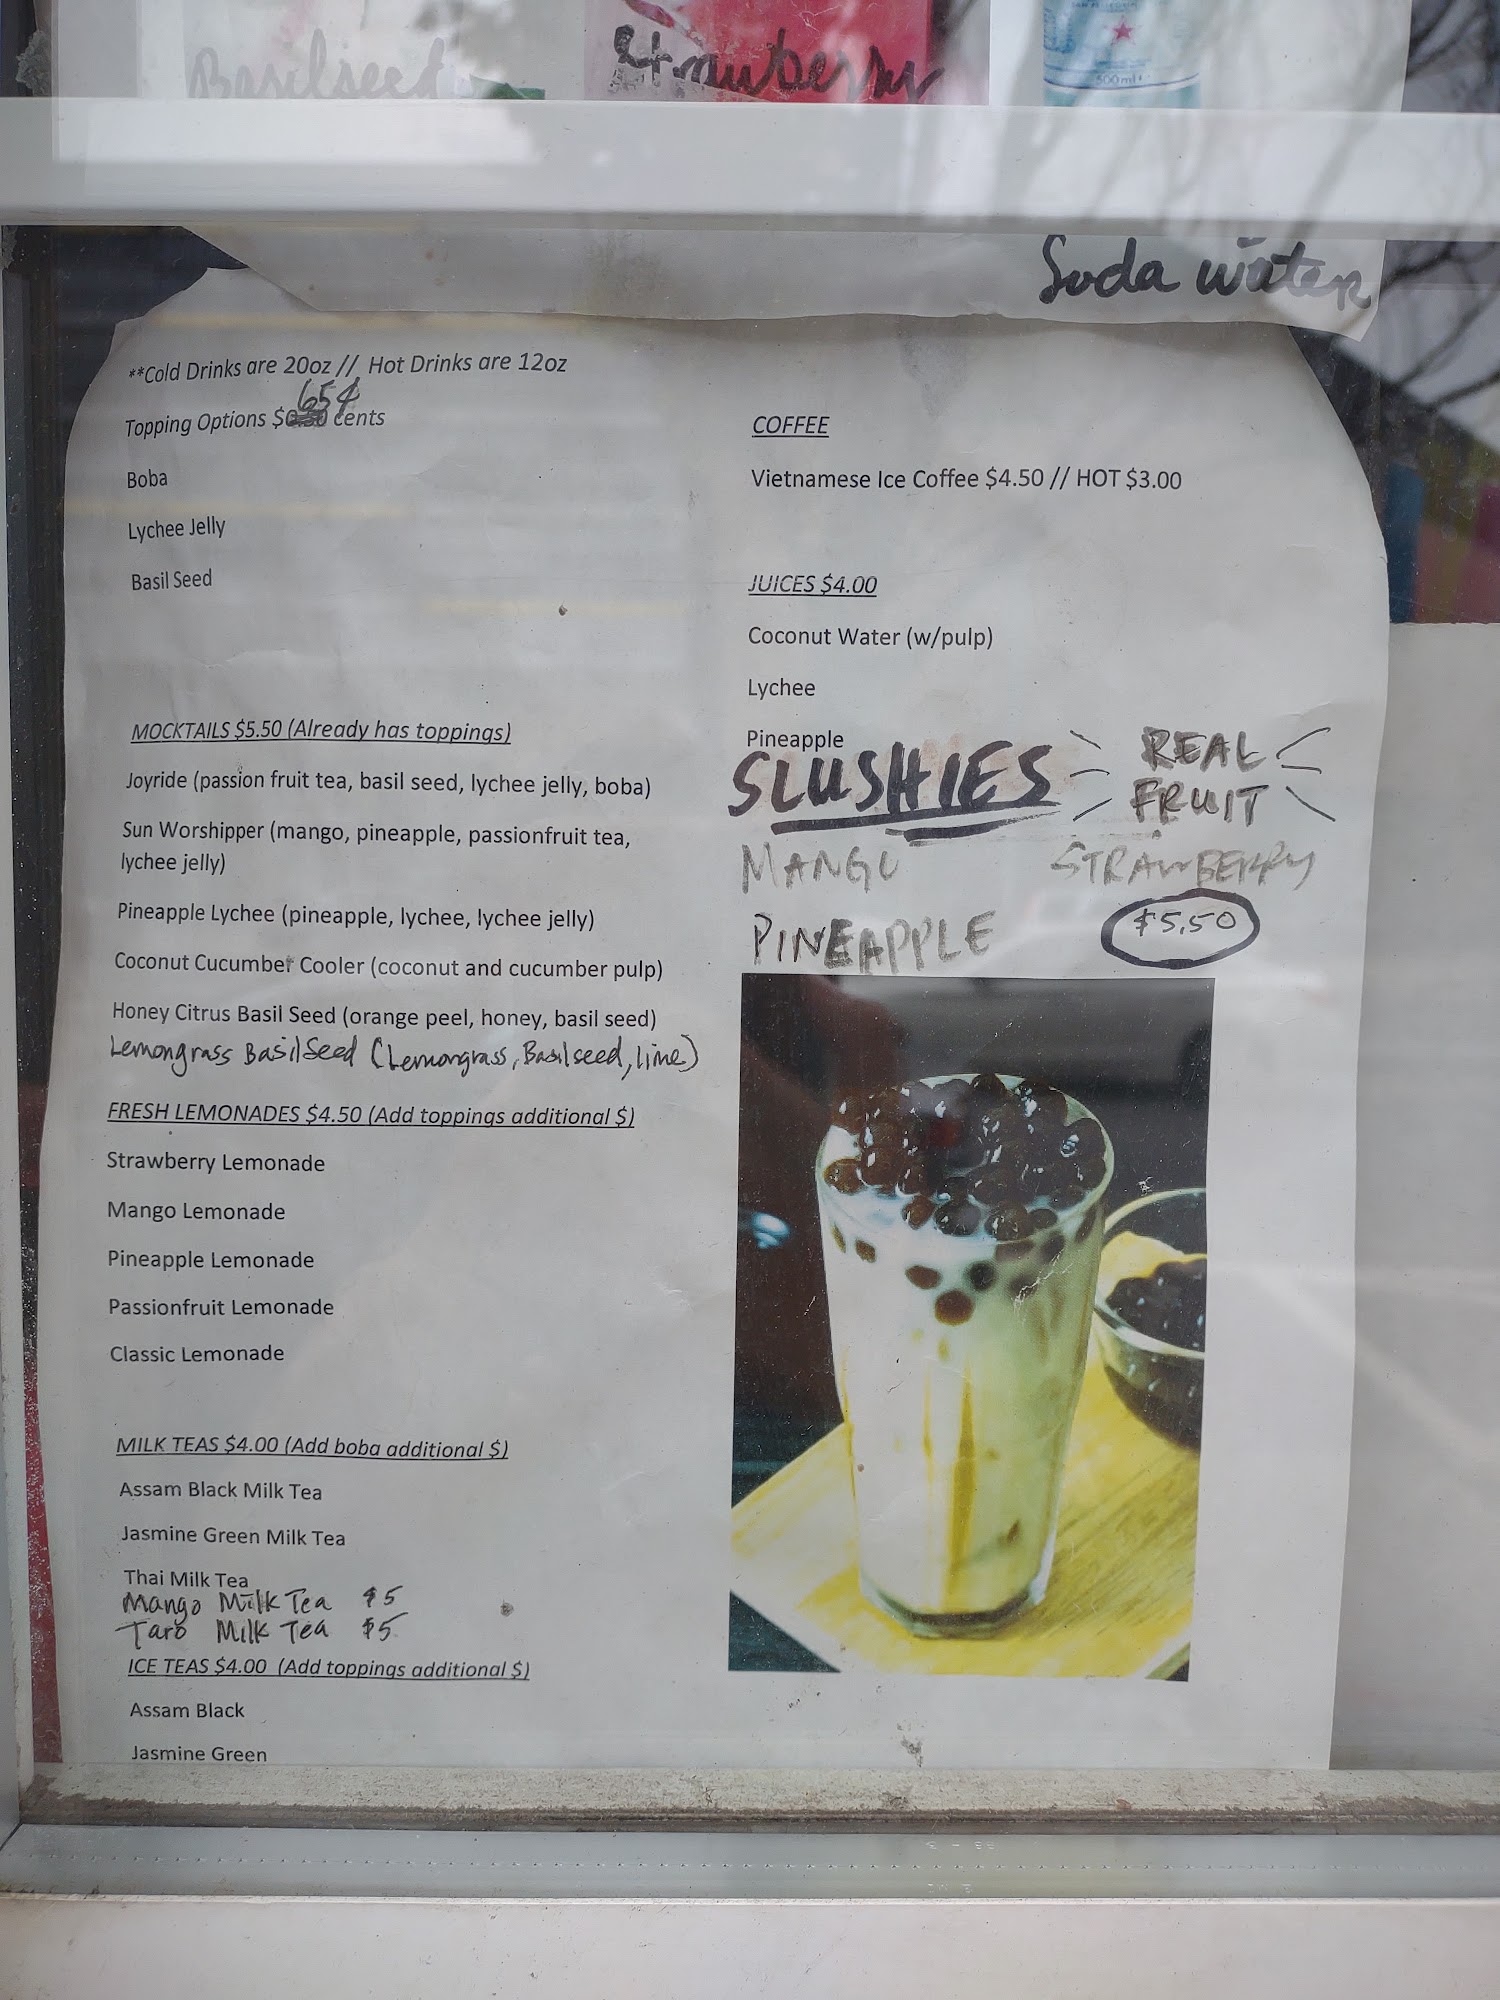 Basilseed
Strawberry
500ml
Soda water
**Cold Drinks are 20oz // Hot Drinks are 12oz
65¢
Topping Options $0.50 cents
Boba
Lychee Jelly
Basil Seed
MOCKTAILS $5.50 (Already has toppings)
Joyride (passion fruit tea, basil seed, lychee jelly, boba)
Sun Worshipper (mango, pineapple, passionfruit tea,
lychee jelly)
Pineapple Lychee (pineapple, lychee, lychee jelly)
Coconut Cucumber Cooler (coconut and cucumber pulp)
Honey Citrus Basil Seed (orange peel, honey, basil seed)
Lemongrass BasilSeed (Lemongrass, Basilseed, lime)
FRESH LEMONADES $4.50 (Add toppings additional $)
Strawberry Lemonade
Mango Lemonade
Pineapple Lemonade
Passionfruit Lemonade
Classic Lemonade
MILK TEAS $4.00 (Add boba additional $)
Assam Black Milk Tea
Jasmine Green Milk Tea
Thai Milk Tea
Mango Milk Tea $5
Taro Milk Tea $5
ICE TEAS $4.00 (Add toppings additional $)
Assam Black
Jasmine Green
COFFEE
Vietnamese Ice Coffee $4.50 // HOT $3.00
JUICES $4.00
Coconut Water (w/pulp)
Lychee
Pineapple
SLUSHIES
REAL
FRUIT
MANGO STRAWBERRY
PINEAPPLE $5.50